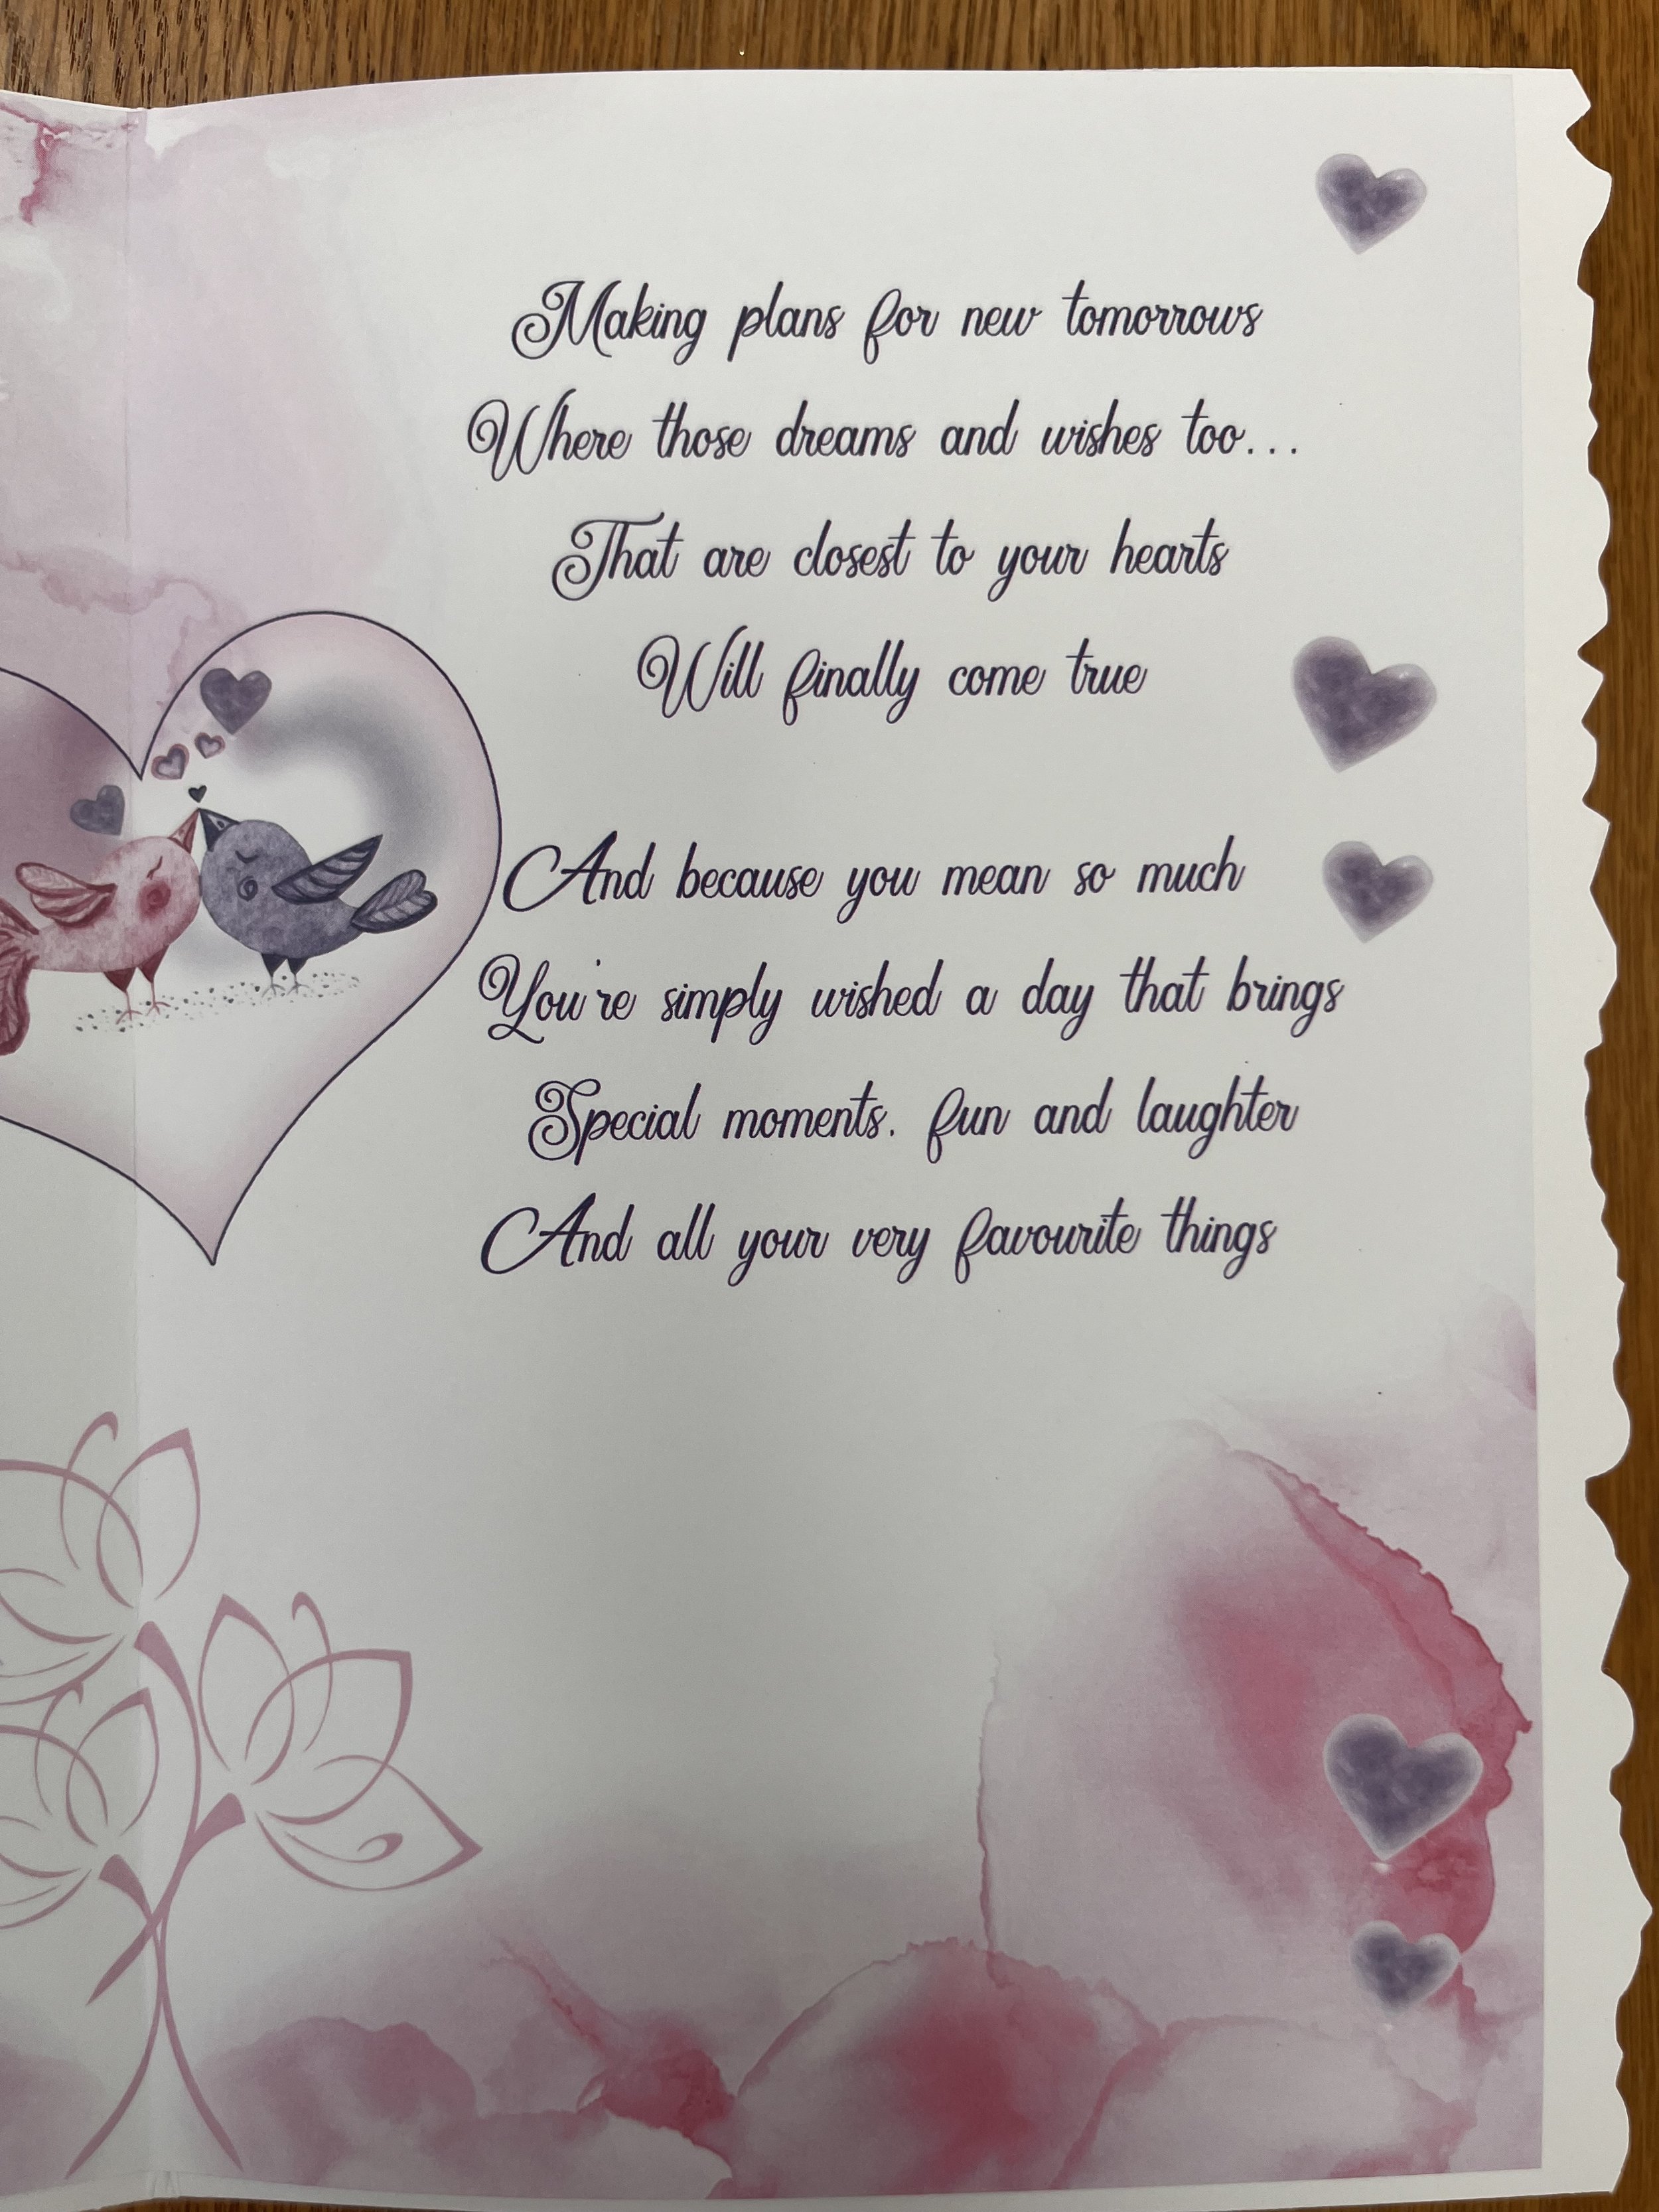 Making plans for new tomorrows
Where those dreams and wishes too...
That are closest to your hearts
Will finally come true
And because you mean so much
You're simply wished a day that brings
Special moments. fun and laughter
And all your very favourite things